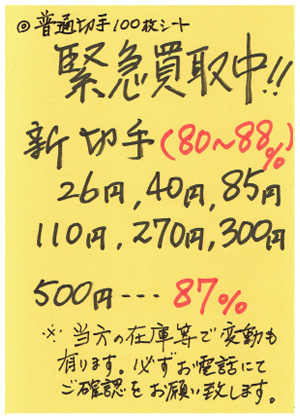 ◎普通切手100枚シート
緊急買取中!!
新切手(80~88%)
26円,40円,85円
110円,270円,300円
500円---87%
※当方の在庫等で変動も
有ります。必ずお電話にて
ご確認をお願い致します。